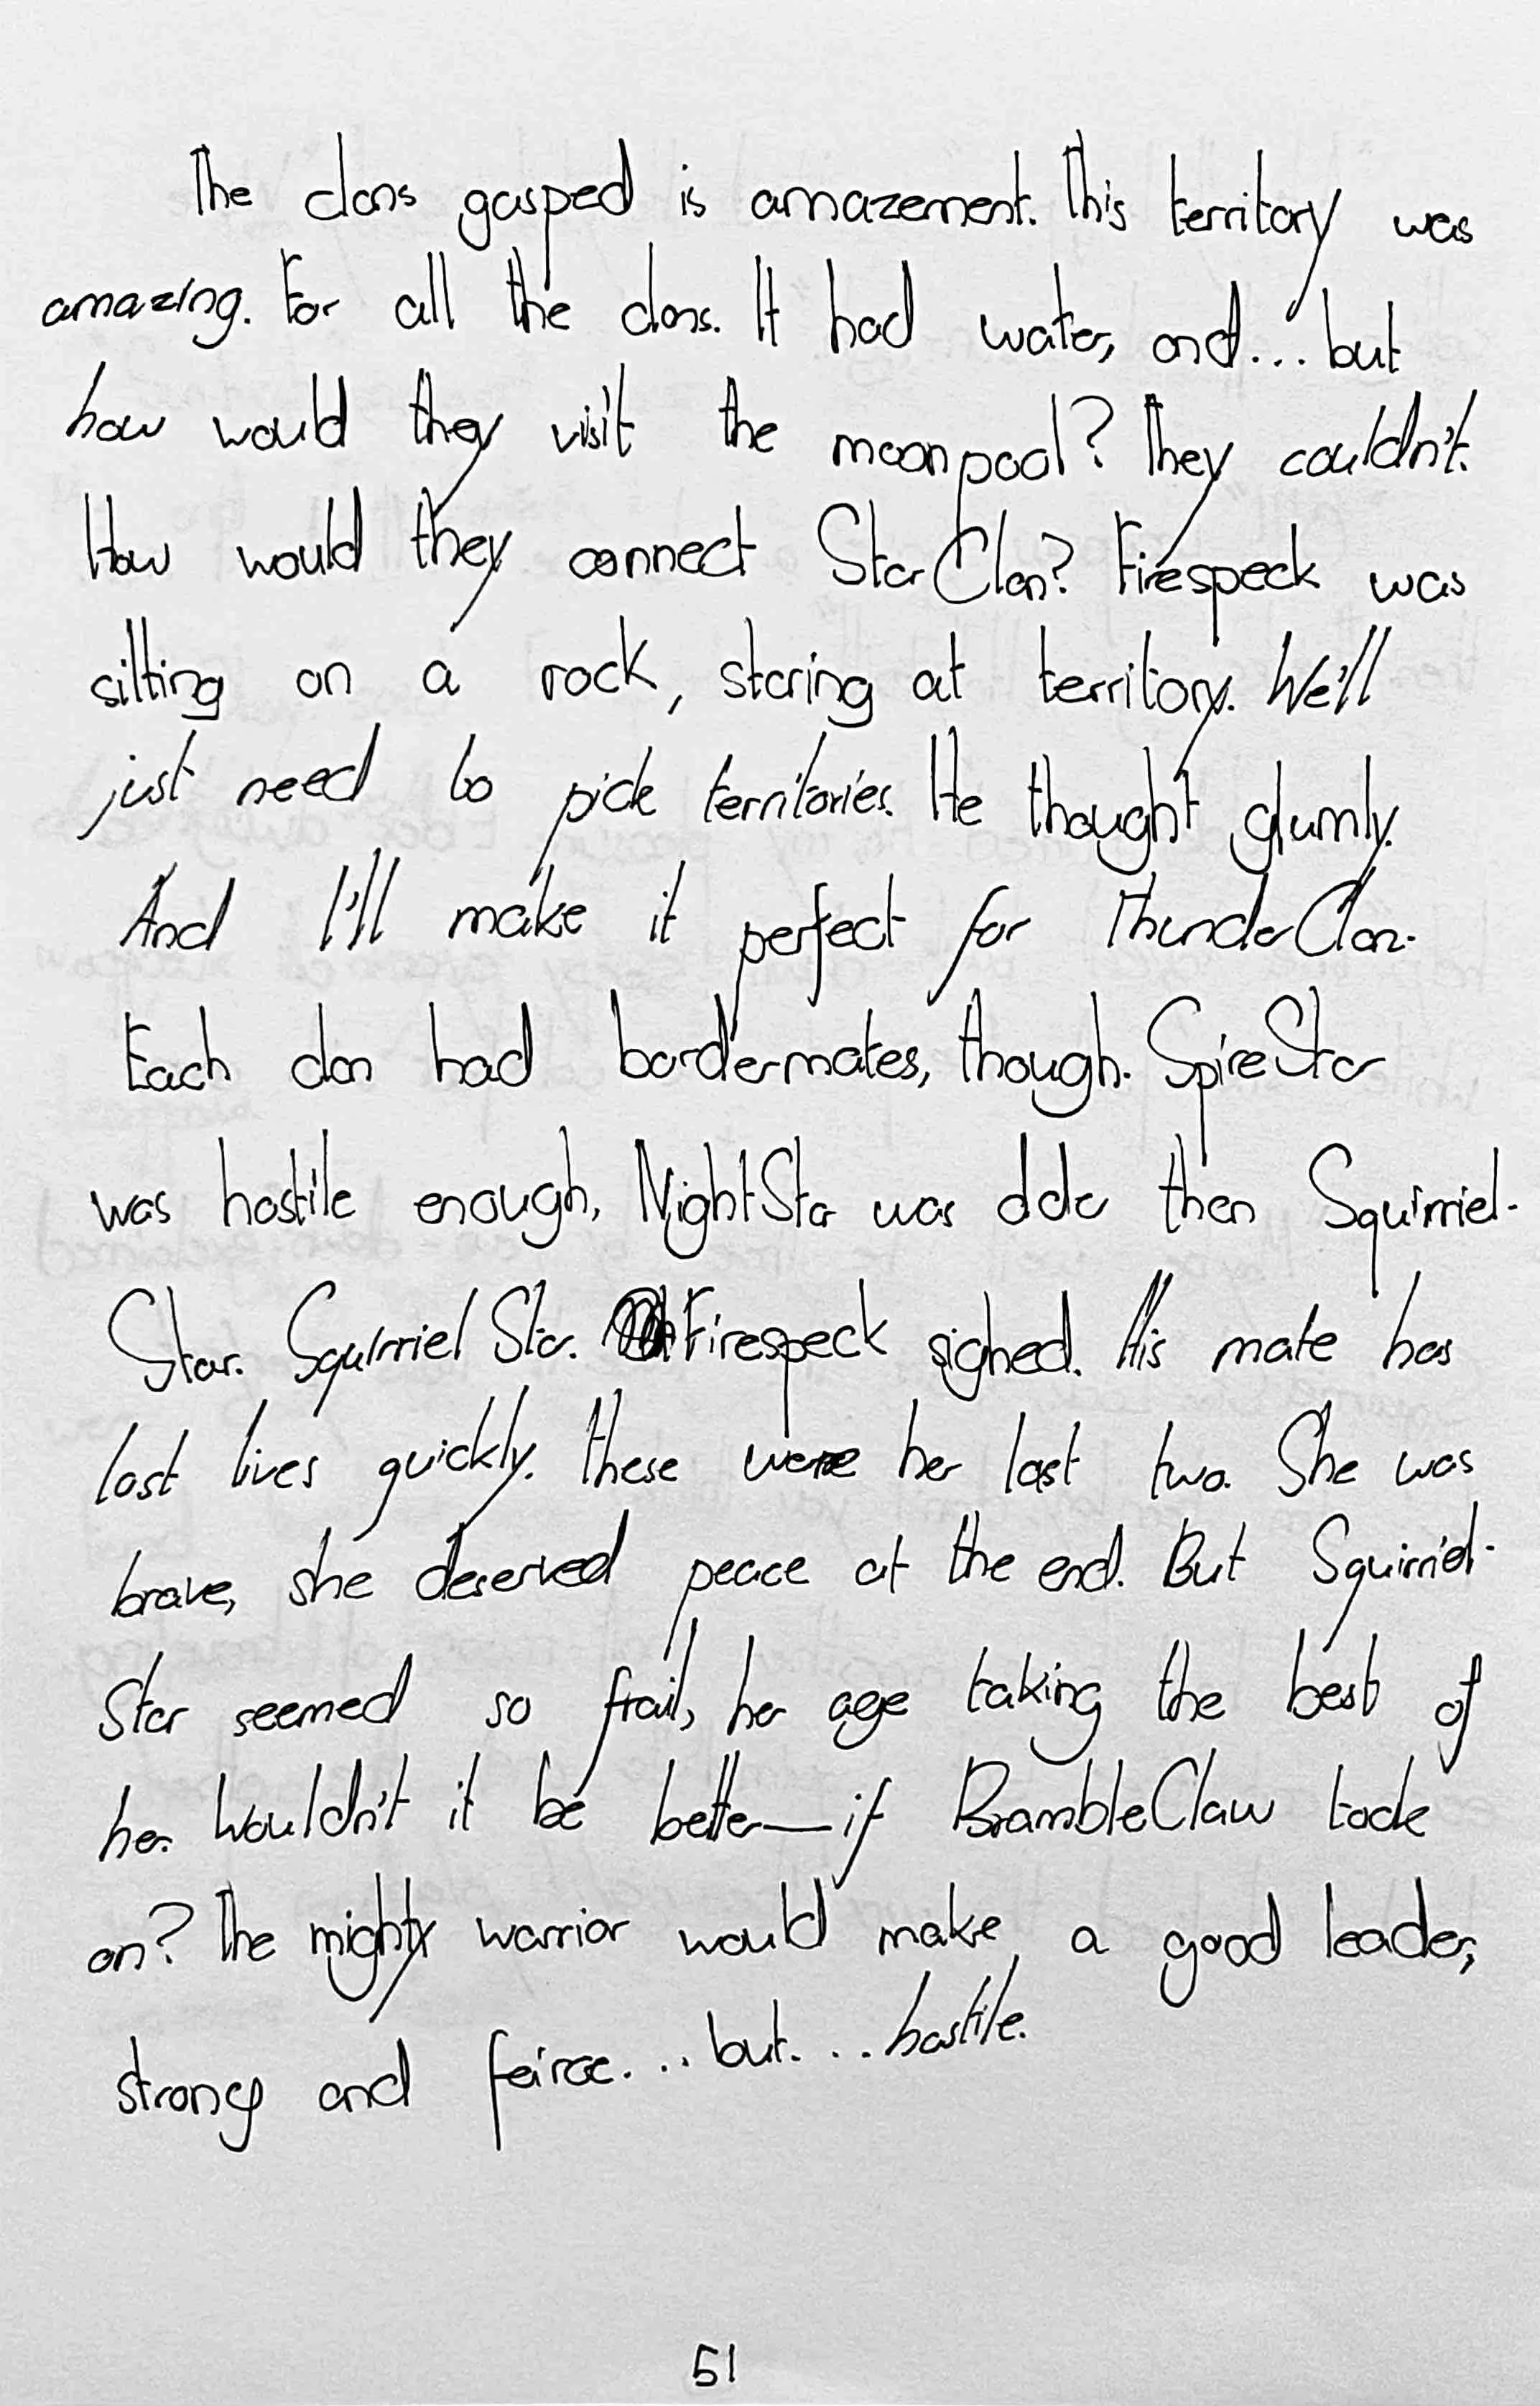 The clans gasped is amazement. This territory was
amazing. For all the clans. It had water, and... but
how would they visit the moonpool? They couldn't.
How would they connect StarClan? Firespeck was
sitting on a rock, staring at territory. We'll
just need to pick territories. He thought glumly.
And I'll make it perfect for ThunderClan.
Each clan had bordermates, though. SpireStar
was hostile enough, NightStar was older then Squirriel-
Star. SquirrielStar. Firespeck sighed. His mate has
lost lives quickly. These were her last two. She was
brave, she deserved peace at the end. But Squirriel-
Star seemed so frail, her age taking the best of
her. Wouldn't it be better—if BrambleClaw took
on? The mighty warrior would make a good leader,
strong and feirce... but... hostile.
51